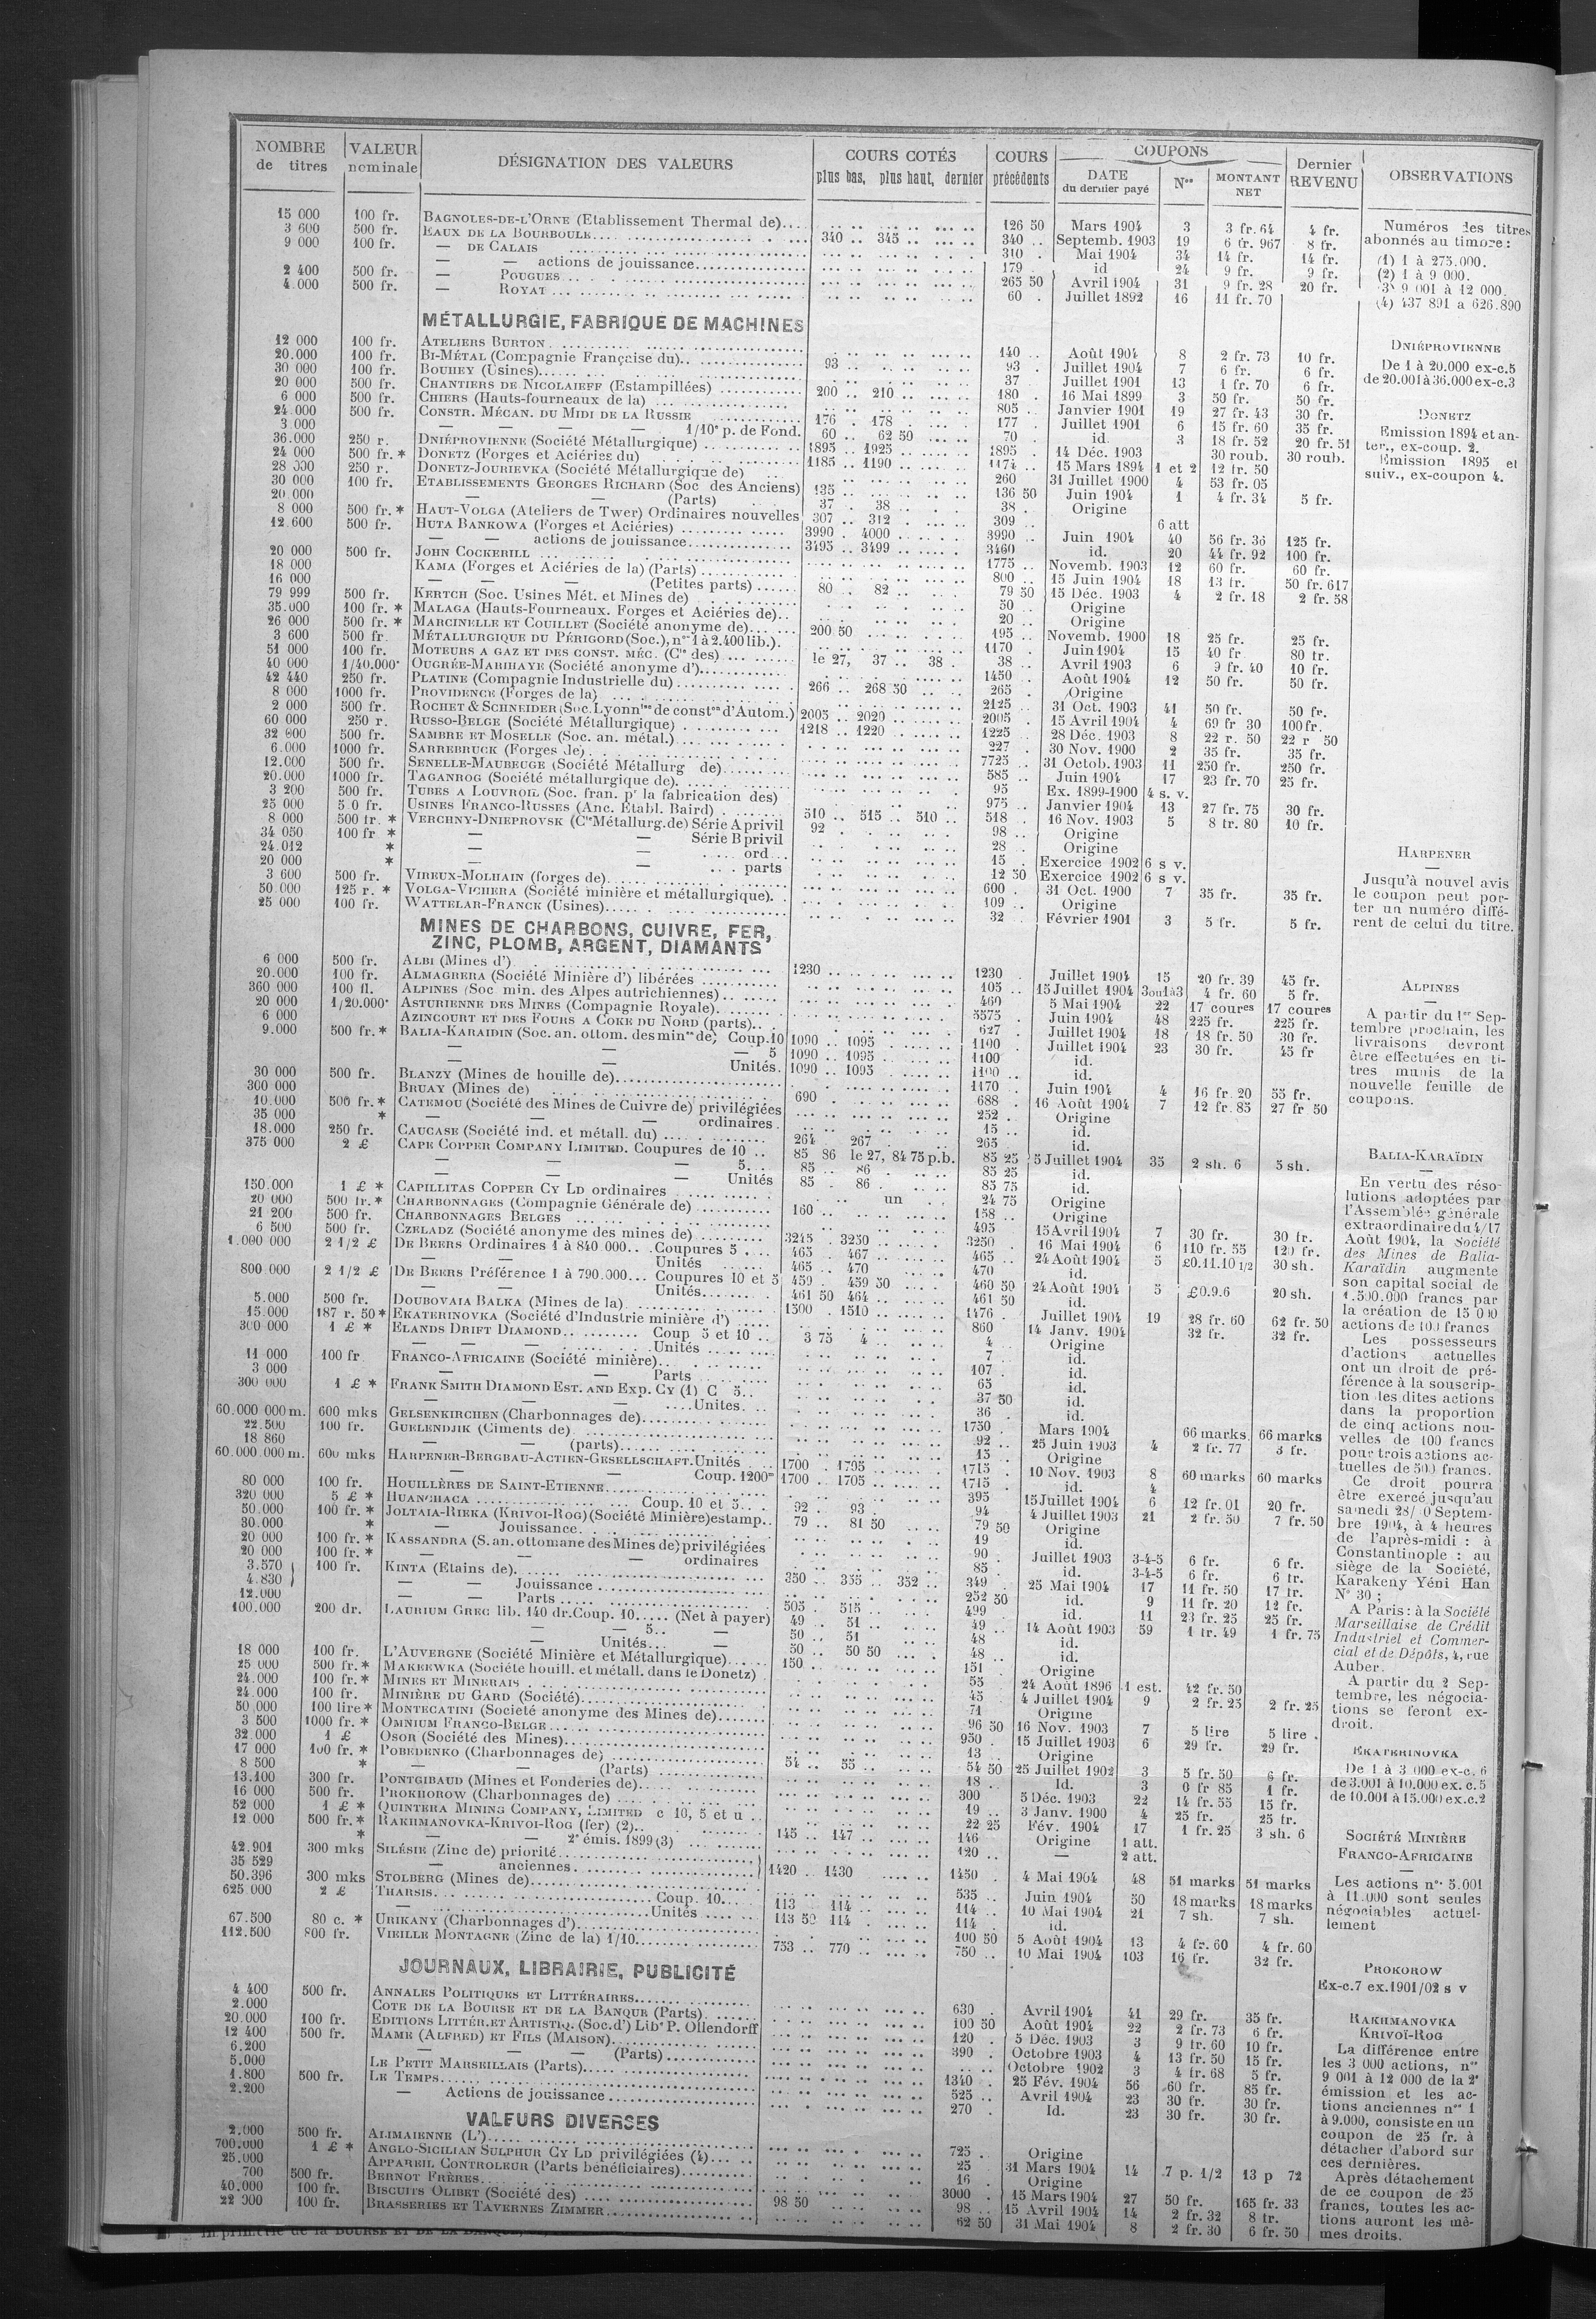 NOMBRE de titres | VALEUR nominale | DÉSIGNATION DES VALEURS | COURS COTÉS plus bas, plus haut, dernier | COURS précédents | COUPONS DATE du dernier payé | Nos | MONTANT NET | Dernier REVENU | OBSERVATIONS
15 000 100 fr. BAGNOLES-DE-L'ORNE (Etablissement Thermal de).... 126 50 Mars 1904 3 3 fr. 64 4 fr.
3 600 500 fr. EAUX DE LA BOURBOULE... 340 .. 345 .. 340 .. Septemb. 1903 19 6 fr. 967 8 fr.
9 000 100 fr. — DE CALAIS 310 . Mai 1904 34 14 fr. 14 fr.
— — actions de jouissance 179 . id 24 9 fr. 9 fr.
2 400 500 fr. — POUGUES 265 50 Avril 1904 31 9 fr. 28 20 fr.
4.000 500 fr. — ROYAT 60 . Juillet 1892 16 11 fr. 70
MÉTALLURGIE, FABRIQUE DE MACHINES
12 000 100 fr. ATELIERS BURTON 140 .. Août 1904 8 2 fr. 73 10 fr.
20.000 100 fr. BI-MÉTAL (Compagnie Française du) 93 .. 93 . Juillet 1904 7 6 fr. 6 fr.
30 000 100 fr. BOUHEY (Usines) 37 . Juillet 1901 13 1 fr. 70 6 fr.
20 000 500 fr. CHANTIERS DE NICOLAIEFF (Estampillées) 200 .. 210 .. 180 . 16 Mai 1899 3 50 fr. 50 fr.
6 000 500 fr. CHIERS (Hauts-fourneaux de la) 805 .. Janvier 1901 19 27 fr. 43 30 fr.
24.000 500 fr. CONSTR. MÉCAN. DU MIDI DE LA RUSSIE 176 . 178 . 177 . Juillet 1901 6 15 fr. 60 35 fr.
3.000 — — — 1/10e p. de Fond. 60 .. 62 50 70 . id. 3 18 fr. 52 20 fr. 51
36.000 250 r. DNIÉPROVIENNE (Société Métallurgique) 1895 .. 1925 .. 1895 . 14 Déc. 1903 30 roub. 30 roub.
24 000 500 fr. * DONETZ (Forges et Aciéries du) 1185 .. 1190 .. 1174 .. 15 Mars 1894 1 et 2 12 fr. 50
28 000 250 r. DONETZ-JOURIEVKA (Société Métallurgique de) 260 31 Juillet 1900 4 53 fr. 05
30 000 100 fr. ETABLISSEMENTS GEORGES RICHARD (Soc des Anciens) 135 .. 136 50 Juin 1904 1 4 fr. 34 5 fr.
20 000 — — (Parts) 37 . 38 .. 38 . Origine
8 000 500 fr. * HAUT-VOLGA (Ateliers de Twer) Ordinaires nouvelles 307 .. 312 . 309 .. 6 att
12.600 500 fr. HUTA BANKOWA (Forges et Aciéries) 3990 . 4000 .. 3990 .. Juin 1904 40 56 fr. 36 125 fr.
— — actions de jouissance 3495 .. 3499 .. 3460 id. 20 44 fr. 92 100 fr.
20 000 500 fr. JOHN COCKERILL 1775 .. Novemb. 1903 12 60 fr. 60 fr.
18 000 KAMA (Forges et Aciéries de la) (Parts) 800 .. 15 Juin 1904 18 13 fr. 50 fr. 617
16 000 — — — (Petites parts) 80 . 82 .. 79 50 15 Déc. 1903 4 2 fr. 18 2 fr. 58
79 999 500 fr. KERTCH (Soc. Usines Mét. et Mines de) 50 .. Origine
35.000 100 fr. * MALAGA (Hauts-Fourneaux. Forges et Aciéries de).. 20 .. Origine
26 000 500 fr. * MARCINELLE ET COUILLET (Société anonyme de) 200 50 195 .. Novemb. 1900 18 25 fr. 25 fr.
3 600 500 fr. MÉTALLURGIQUE DU PÉRIGORD (Soc.), nos 1 à 2.400 lib.). 1170 . Juin 1904 15 40 fr 80 fr.
51 000 100 fr. MOTEURS A GAZ ET DES CONST. MÉC. (Cie des) le 27, 37 .. 38 . 38 .. Avril 1903 6 9 fr. 40 10 fr.
40 000 1/40.000e OUGRÉE-MARIHAYE (Société anonyme d') 1450 .. Août 1904 12 50 fr. 50 fr.
42 440 250 fr. PLATINE (Compagnie Industrielle du) 266 .. 268 50 265 . Origine
8 000 1000 fr. PROVIDENCE (Forges de la) 2125 .. 31 Oct. 1903 41 50 fr. 50 fr.
2 000 500 fr. ROCHET & SCHNEIDER (Soc. Lyonnise de conston d'Autom.) 2005 .. 2020 .. 2005 . 15 Avril 1904 4 69 fr 30 100 fr.
60 000 250 r. RUSSO-BELGE (Société Métallurgique) 1218 .. 1220 .. 1225 .. 28 Déc. 1903 8 22 r. 50 22 r 50
32 000 500 fr. SAMBRE ET MOSELLE (Soc. an. métal.) 227 . 30 Nov. 1900 2 35 fr. 35 fr.
6.000 1000 fr. SARREBRUCK (Forges de) 7725 .. 31 Octob. 1903 11 250 fr. 250 fr.
12.000 500 fr. SENELLE-MAUBEUGE (Société Métallurg de) 585 .. Juin 1904 17 23 fr. 70 25 fr.
20.000 1000 fr. TAGANROG (Société métallurgique de) 95 Ex. 1899-1900 4 s. v.
3 200 500 fr. TUBES A LOUVROIL (Soc. fran. pr la fabrication des) 975 .. Janvier 1904 13 27 fr. 75 30 fr.
25 000 5 0 fr. USINES FRANCO-RUSSES (Anc. Etabl. Baird) 510 .. 515 .. 510 .. 518 . 16 Nov. 1903 5 8 fr. 80 10 fr.
8 000 500 fr. * VERCHNY-DNIEPROVSK (Cie Métallurg. de) Série A privil 92 . 98 .. Origine
34 050 100 fr * — — Série B privil 28 . Origine
24.012 * — — ord 15 . Exercice 1902 6 s v.
20 000 * — — parts 12 50 Exercice 1902 6 s v.
3 600 500 fr. VIREUX-MOLHAIN (forges de) 600 . 31 Oct. 1900 7 35 fr. 35 fr.
50 000 125 r. * VOLGA-VICHERA (Société minière et métallurgique). 109 .. Origine
25 000 100 fr. WATTELAR-FRANCK (Usines) 32 . Février 1901 3 5 fr. 5 fr.
MINES DE CHARBONS, CUIVRE, FER,
ZINC, PLOMB, ARGENT, DIAMANTS
6 000 500 fr. ALBI (Mines d') 1230 .. 1230 . Juillet 1904 15 20 fr. 39 45 fr.
20.000 100 fr. ALMAGRERA (Société Minière d') libérées 105 .. 15 Juillet 1904 3ou1à3 4 fr. 60 5 fr.
360 000 100 fl. ALPINES (Soc min. des Alpes autrichiennes) 460 5 Mai 1904 22 17 coures 17 coures
20 000 1/20.000e ASTURIENNE DES MINES (Compagnie Royale) 5575 . Juin 1904 48 225 fr. 225 fr.
6 000 AZINCOURT ET DES FOURS A COKE DU NORD (parts) 627 . Juillet 1904 18 18 fr. 50 30 fr.
9.000 500 fr. * BALIA-KARAIDIN (Soc. an. ottom. des mines de) Coup. 10 1090 .. 1095 1100 . Juillet 1904 23 30 fr. 45 fr
— — — 5 1090 .. 1095 1100 id.
Unités. 1090 .. 1095 1100 .. id.
30 000 500 fr. BLANZY (Mines de houille de) 1170 . Juin 1904 4 16 fr. 20 55 fr.
300 000 BRUAY (Mines de) 690 . 688 . 16 Août 1904 7 12 fr. 85 27 fr 50
10.000 500 fr. * CATEMOU (Société des Mines de Cuivre de) privilégiées 252 . Origine
35 000 * — — ordinaires 15 .. id.
18.000 250 fr. CAUCASE (Société ind. et métall. du) 264 . 267 265 . id.
375 000 2 £ CAPE COPPER COMPANY LIMITED. Coupures de 10 85 86 le 27, 84 75 p.b. 85 25 5 Juillet 1904 35 2 sh. 6 5 sh.
— — — 5 85 .. 86 . 85 25 id.
— — — Unités 85 . 86 . 85 75 id.
150.000 1 £ * CAPILLITAS COPPER CY LD ordinaires un 24 75 Origine
20 000 500 fr. * CHARBONNAGES (Compagnie Générale de) 160 .. 158 .. Origine
21 200 500 fr. CHARBONNAGES BELGES 495 15 Avril 1904 7 30 fr. 30 fr.
6 500 500 fr. CZELADZ (Société anonyme des mines de) 3245 . 3250 3250 . 16 Mai 1904 6 110 fr. 55 120 fr.
1.000 000 2 1/2 £ DE BEERS Ordinaires 1 à 840 000 .. Coupures 5 465 . 467 .. 465 .. 24 Août 1904 5 £0.11.10 1/2 30 sh.
— — Unités 465 .. 470 470 id.
800.000 2 1/2 £ DE BEERS Préférence 1 à 790.000... Coupures 10 et 5 459 . 459 50 460 50 24 Août 1904 5 £0.9.6 20 sh.
— — Unités 461 50 464 .. 461 50 id.
5.000 500 fr. DOUBOVAIA BALKA (Mines de la) 1500 . 1510 1476 . Juillet 1904 19 28 fr. 60 62 fr. 50
15.000 187 r. 50 * EKATERINOVKA (Société d'Industrie minière d') 860 14 Janv. 1904 32 fr. 32 fr.
300 000 1 £ * ELANDS DRIFT DIAMOND Coup 5 et 10 3 75 4 .. 4 Origine
— — Unités 7 .. id.
11 000 100 fr FRANCO-AFRICAINE (Société minière) 107 . id.
3 000 — Parts 65 id.
300 000 1 £ * FRANK SMITH DIAMOND EST. AND EXP. CY (1) C 5 37 50 id.
Unites. 36 . id.
60.000 000 m. 600 mks GELSENKIRCHEN (Charbonnages de) 1750 . Mars 1904 66 marks 66 marks
22.500 100 fr. GUELENDJIK (Ciments de) 92 .. 25 Juin 1903 4 2 fr. 77 3 fr.
18 860 — — (parts) 15 . Origine
60.000.000 m. 600 mks HARPENER-BERGBAU-ACTIEN-GESELLSCHAFT. Unités 1700 . 1705 1715 . 10 Nov. 1903 8 60 marks 60 marks
Coup. 1200m 1700 .. 1705 1715 . id. 4
80 000 100 fr. HOUILLÈRES DE SAINT-ETIENNE 395 15 Juillet 1904 6 12 fr. 01 20 fr.
320 000 5 £ * HUANCHACA Coup. 10 et 5 92 . 93 . 94 4 Juillet 1904 21 2 fr. 50 7 fr. 50
50.000 100 fr. * JOLTAIA-RIEKA (KRIVOI-ROG) (Société Minière) estamp.. 79 .. 81 50 79 50 Origine
30.000 * — Jouissance 19 id.
20 000 100 fr. * KASSANDRA (S. an. ottomane des Mines de) privilégiées 90 . Juillet 1903 3-4-5 6 fr. 6 fr.
20 000 100 fr. * — — ordinaires 85 . id. 3-4-5 6 fr. 6 fr.
3.570 100 fr. KINTA (Etains de) 350 .. 355 .. 352 .. 349 . 25 Mai 1904 17 11 fr. 50 17 fr.
4.830 — — Jouissance 252 50 id. 9 11 fr. 20 12 fr.
12.000 — — Parts 505 . 515 499 id. 11 23 fr. 25 25 fr.
100.000 200 dr. LAURIUM GREC lib. 140 dr. Coup. 10 (Net à payer) 49 . 51 49 .. 14 Août 1903 59 1 fr. 49 1 fr. 75
— — 5 — 50 .. 51 48 id.
— Unités — 50 .. 50 50 48 .. id.
18 000 100 fr. L'AUVERGNE (Société Minière et Métallurgique) 150 .. 151 . Origine
25 000 500 fr. * MAKEEWKA (Société houill. et métall. dans le Donetz) 55 . 24 Août 1896 1 est. 42 fr. 50
24.000 100 fr. * MINES ET MINERAIS 45 . 4 Juillet 1904 9 2 fr. 25 2 fr. 25
24.000 100 fr. MINIÈRE DU GARD (Société) 71 . Origine
50 000 100 lire * MONTECATINI (Société anonyme des Mines de) 96 50 16 Nov. 1903 7 5 lire 5 lire
3 500 1000 fr. * OMNIUM FRANCO-BELGE 950 . 15 Juillet 1903 6 29 fr. 29 fr.
32 000 1 £ OSOR (Société des Mines) 13 .. Origine
17 000 100 fr. * POBEDENKO (Charbonnages de) 54 .. 55 54 50 25 Juillet 1902 3 5 fr. 50 6 fr.
8 500 * — — (Parts) 18 .. Id. 3 0 fr 85 1 fr.
13.100 300 fr. PONTGIBAUD (Mines et Fonderies de) 300 5 Déc. 1903 22 14 fr. 55 15 fr.
16 000 500 fr. PROKHOROW (Charbonnages de) 19 .. 3 Janv. 1900 4 25 fr. 25 fr.
52 000 1 £ * QUINTERA MINING COMPANY, LIMITED c 10, 5 et u 22 25 Fév. 1904 17 1 fr. 25 3 sh. 6
12 000 500 fr. * RAKHMANOVKA-KRIVOI-ROG (fer) (2) 145 .. 147 146 Origine 1 att.
* — — 2e émis. 1899 (3) 120 .. — 2 att.
42.901 300 mks SILÉSIE (Zinc de) priorité 1420 .. 1430 1450 . 4 Mai 1904 48 51 marks 51 marks
35 529 — anciennes
50.396 300 mks STOLBERG (Mines de) 535 .. Juin 1904 50 18 marks 18 marks
625 000 2 £ THARSIS Coup. 10 113 . 114 114 .. 10 Mai 1904 21 7 sh. 7 sh.
— Unités 113 50 114 114 . id.
67.500 80 c. * URIKANY (Charbonnages d') 100 50 5 Août 1904 13 4 fr. 60 4 fr. 60
112.500 800 fr. VIEILLE MONTAGNE (Zinc de la) 1/10 753 .. 770 750 .. 10 Mai 1904 103 16 fr. 32 fr.
JOURNAUX, LIBRAIRIE, PUBLICITÉ
4 400 500 fr. ANNALES POLITIQUES ET LITTÉRAIRES 630 . Avril 1904 41 29 fr. 35 fr.
2.000 COTE DE LA BOURSE ET DE LA BANQUE (Parts) 100 50 Août 1904 22 2 fr. 73 6 fr.
20.000 100 fr. EDITIONS LITTÉR. ET ARTISTIQ. (Soc. d') Libie P. Ollendorff 120 . 5 Déc. 1903 3 9 fr. 60 10 fr.
12 400 500 fr. MAME (ALFRED) ET FILS (MAISON) 390 . Octobre 1903 4 13 fr. 50 15 fr.
6.200 — — — (Parts) Octobre 1902 3 4 fr. 68 5 fr.
5.000 LE PETIT MARSEILLAIS (Parts) 1340 . 25 Fév. 1904 56 60 fr. 85 fr.
1.800 500 fr. LE TEMPS 525 .. Avril 1904 23 30 fr. 30 fr.
2.200 — Actions de jouissance 270 . Id. 23 30 fr. 30 fr.
VALEURS DIVERSES
2.000 500 fr. ALIMAIENNE (L') 725 . Origine
700.000 1 £ * ANGLO-SICILIAN SULPHUR CY LD privilégiées (4) 25 . 31 Mars 1904 14 7 p. 1/2 13 p 72
25.000 APPAREIL CONTROLEUR (Parts bénéficiaires) 16 . Origine
700 500 fr. BERNOT FRÈRES 3000 . 15 Mars 1904 27 50 fr. 165 fr. 33
40.000 100 fr. BISCUITS OLIBET (Société des) 98 50 98 .. 15 Avril 1904 14 2 fr. 32 8 fr.
22 000 100 fr. BRASSERIES ET TAVERNES ZIMMER 62 50 31 Mai 1904 8 2 fr. 30 6 fr. 50
Numéros des titres
abonnés au timbre:
(1) 1 à 275.000.
(2) 1 à 9 000.
(3) 9 001 à 12 000.
(4) 437 891 a 626.890
DNIÉPROVIENNE
De 1 à 20.000 ex-c.5
de 20.001 à 36.000 ex-c.3
DONETZ
Emission 1894 et an-
ter., ex-coup. 2.
Emission 1895 et
suiv., ex-coupon 4.
HARPENER
Jusqu'à nouvel avis
le coupon peut por-
ter un numéro diffé-
rent de celui du titre.
ALPINES
A partir du 1er Sep-
tembre prochain, les
livraisons devront
être effectuées en ti-
tres munis de la
nouvelle feuille de
coupons.
BALIA-KARAÏDIN
En vertu des réso-
lutions adoptées par
l'Assemblée générale
extraordinaire du 4/17
Août 1904, la Société
des Mines de Balia-
Karaïdin augmente
son capital social de
1.500.000 francs par
la création de 15 000
actions de 100 francs
Les possesseurs
d'actions actuelles
ont un droit de pré-
férence à la souscrip-
tion les dites actions
dans la proportion
de cinq actions nou-
velles de 100 francs
pour trois actions ac-
tuelles de 500 francs.
Ce droit pourra
être exercé jusqu'au
samedi 28/ 0 Septem-
bre 1904, à 4 heures
de l'après-midi : à
Constantinople : au
siège de la Société,
Karakeny Yéni Han
N° 30 ;
A Paris : à la Société
Marseillaise de Crédit
Industriel et Commer-
cial et de Dépôts, 4, rue
Auber.
A partir du 2 Sep-
tembre, les négocia-
tions se feront ex-
droit.
EKATERINOVKA
De 1 à 3 000 ex-c. 6
de 3.001 à 10.000 ex. c. 5
de 10.001 à 15.000 ex. c. 2
SOCIÉTÉ MINIÈRE
FRANCO-AFRICAINE
Les actions nos 5.001
à 11.000 sont seules
négociables actuel-
lement
PROKOROW
Ex-c.7 ex.1901/02 s v
RAKHMANOVKA
KRIVOÏ-ROG
La différence entre
les 3 000 actions, nos
9 001 à 12 000 de la 2e
émission et les ac-
tions anciennes nos 1
à 9.000, consiste en un
coupon de 25 fr. à
détacher d'abord sur
ces dernières.
Après détachement
de ce coupon de 25
francs, toutes les ac-
tions auront les mê-
mes droits.